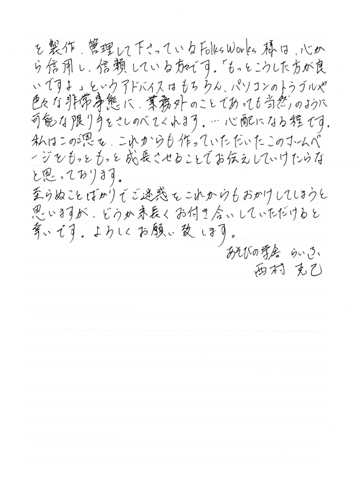 を製作、管理して下さっているFolksWorks様は、心か
ら信用し、信頼している方です。「もっとこうした方が良
いですよ。」というアドバイスはもちろん、パソコンのトラブルや
色々な非常事態に、業務外のことであっても当然のように
可能な限り手をさしのべてくれます。…心配になる程です。
私はこの思を、これからも作っていただいたこのホームペ
ージをもっともっと成長させることでお伝えしていけたらな
と思っております。
至らぬことばかりでご迷惑をこれからもおかけしてしまうと
思いますが、どうか末長くお付き合いしていただけると
幸いです。よろしくお願い致します。
あそびの学舎 らいさい
西村 克己